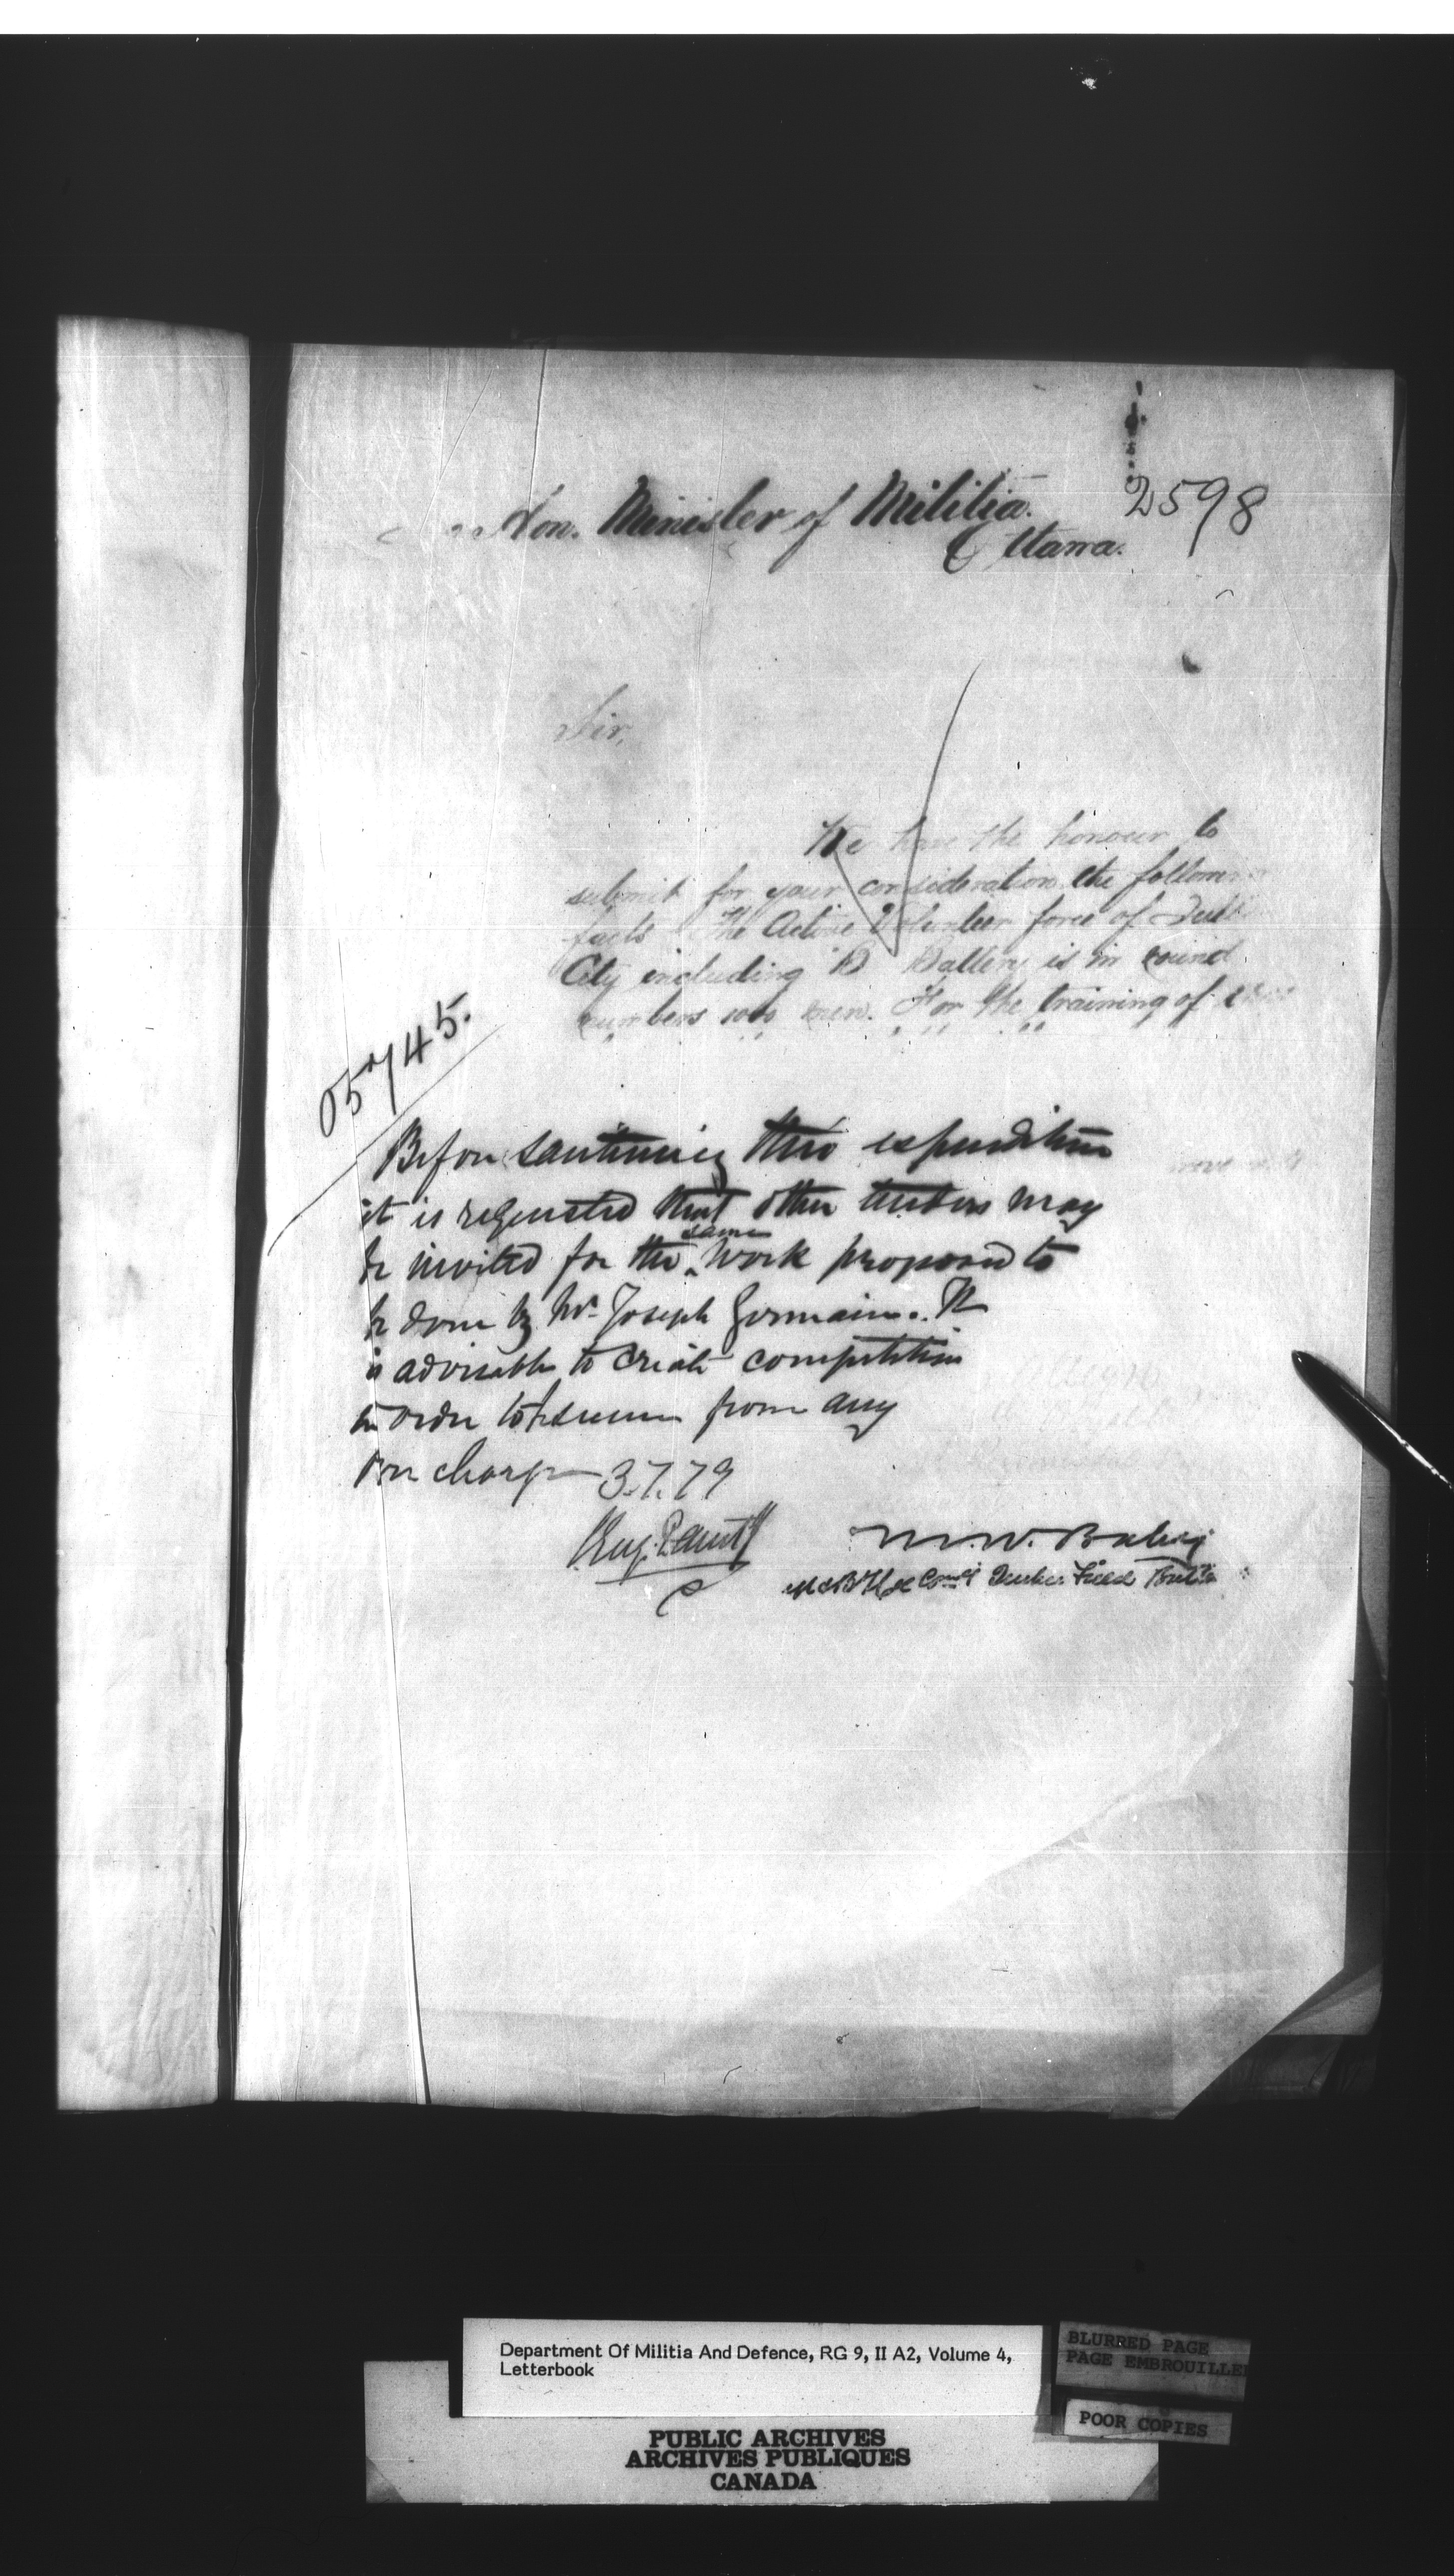 2598
Hon. Minister of Militia.
Ottawa.
Sir,
We have the honour to
submit for your consideration the
facts The Active Volunteer force of
City including B Battery is in round
numbers men. For the training of
05745.
Before sanctioning this expenditure
it is requested that other tenders may
be invited for the same work proposed to
be done by Mr. Joseph Germain. It
is advisable to create competition
in order to from any
over charge 3.7.79
M.W. Baby
Field
Department Of Militia And Defence, RG 9, II A2, Volume 4,
Letterbook
BLURRED PAGE
PAGE EMBROUILLEE
POOR COPIES
PUBLIC ARCHIVES
ARCHIVES PUBLIQUES
CANADA